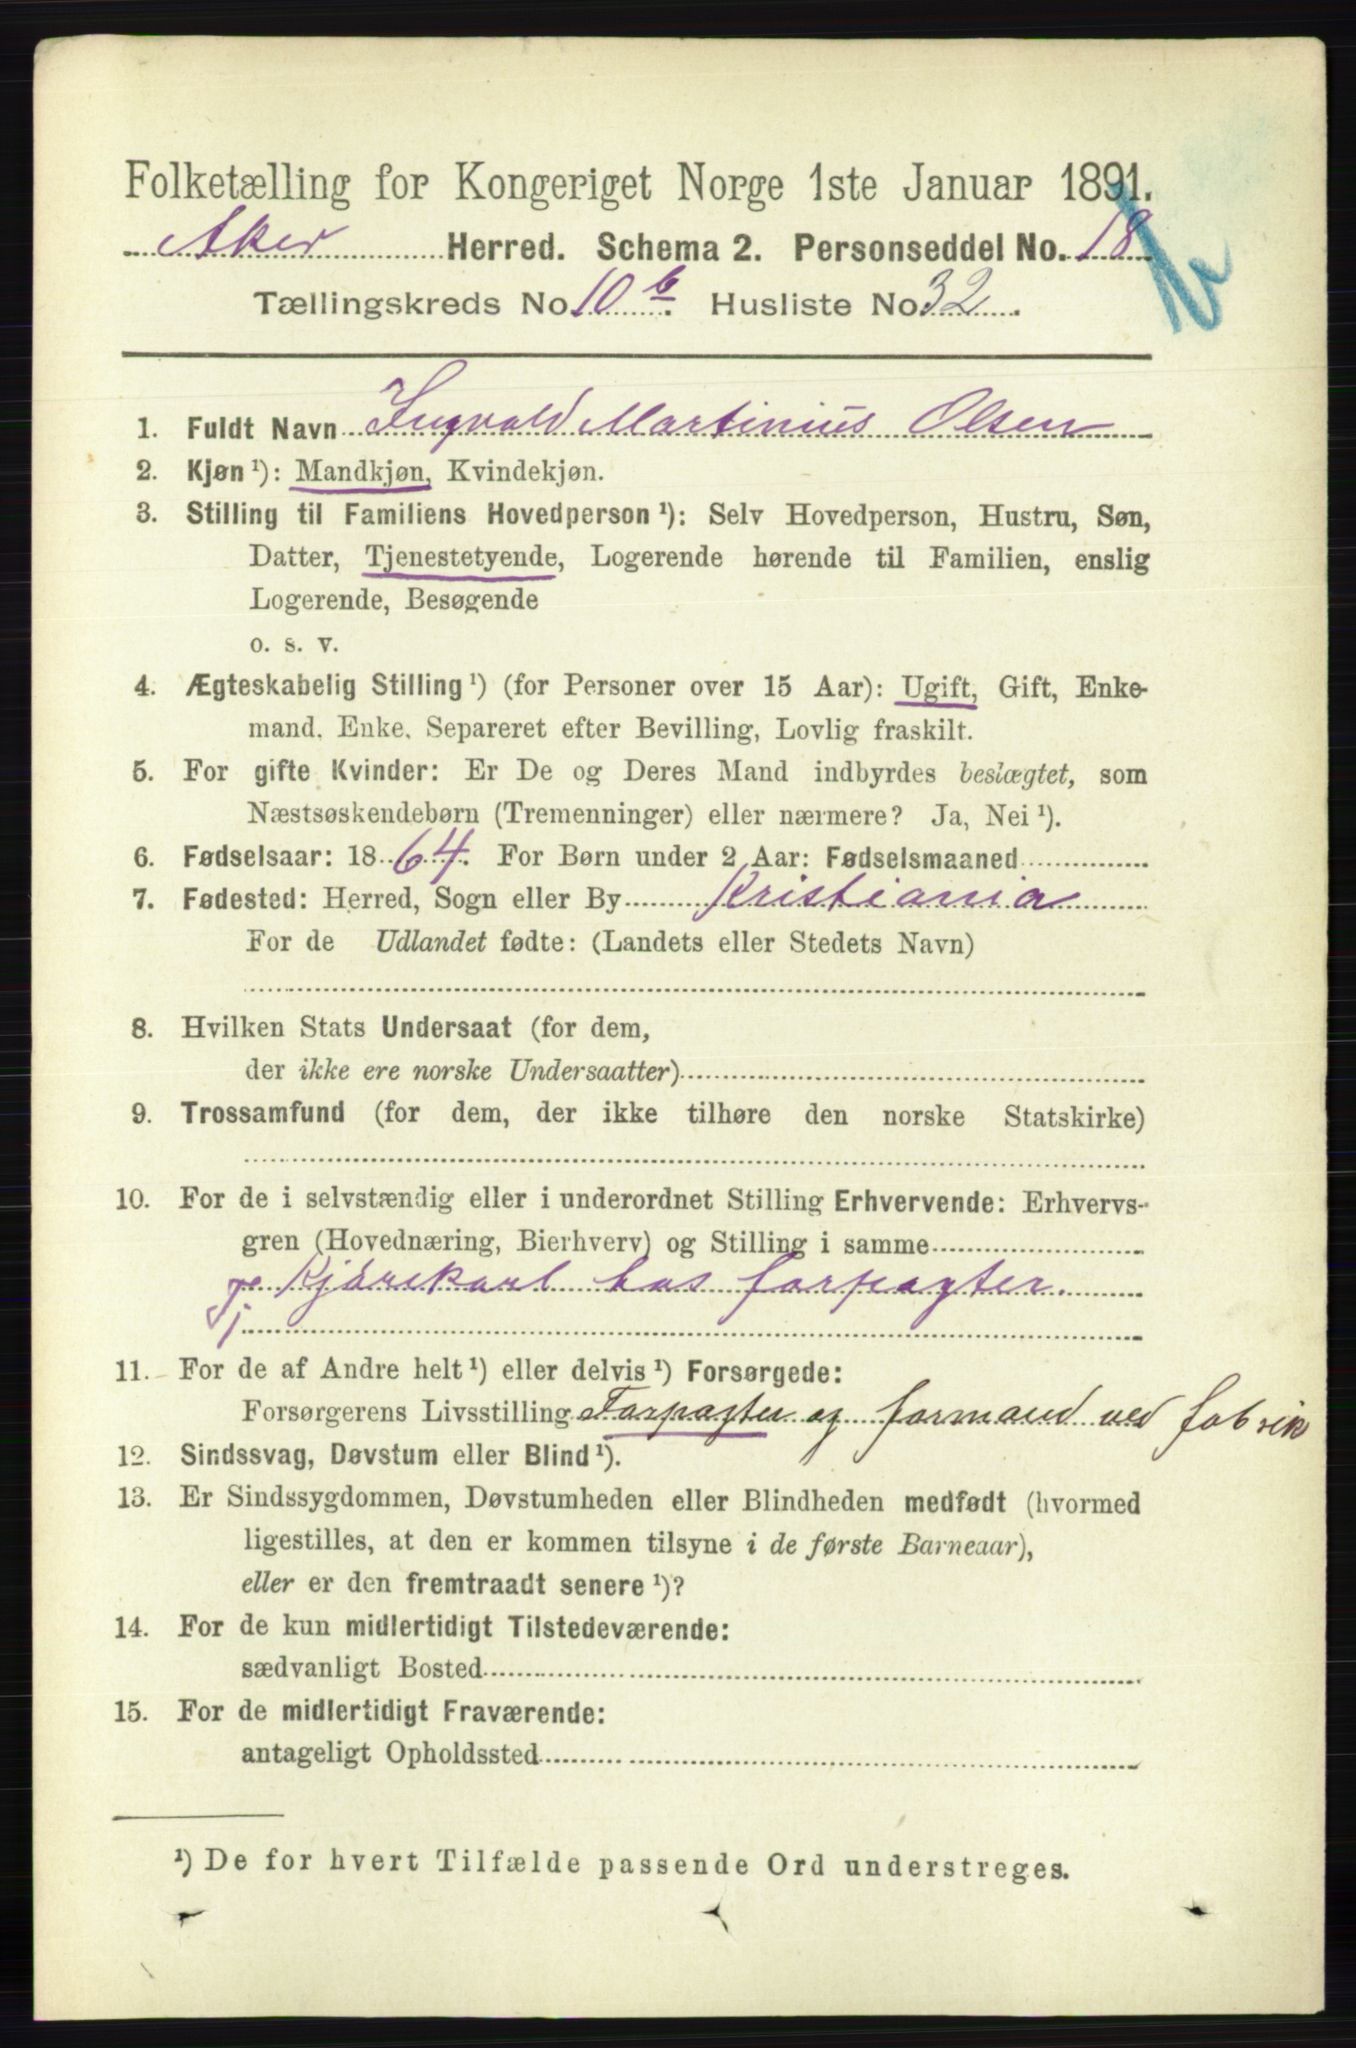 Folketælling for Kongeriget Norge 1ste Januar 1891.
Aker Herred. Schema 2. Personseddel No. 18
Tællingskreds No. 10 b. Husliste No. 32.
1. Fuldt Navn Ingvald Martinius Olsen
2. Kjøn ¹): Mandkjøn, Kvindekjøn.
3. Stilling til Familiens Hovedperson ¹): Selv Hovedperson, Hustru, Søn,
Datter, Tjenestetyende, Logerende hørende til Familien, enslig
Logerende, Besøgende
o. s. v.
4. Ægteskabelig Stilling ¹) (for Personer over 15 Aar): Ugift, Gift, Enke-
mand, Enke, Separeret efter Bevilling, Lovlig fraskilt.
5. For gifte Kvinder: Er De og Deres Mand indbyrdes beslægtet, som
Næstsøskendebørn (Tremenninger) eller nærmere? Ja, Nei ¹).
6. Fødselsaar: 1864. For Børn under 2 Aar: Fødselsmaaned
7. Fødested: Herred, Sogn eller By Kristiania
For de Udlandet fødte: (Landets eller Stedets Navn)
8. Hvilken Stats Undersaat (for dem,
der ikke ere norske Undersaatter)
9. Trossamfund (for dem, der ikke tilhøre den norske Statskirke)
10. For de i selvstændig eller i underordnet Stilling Erhvervende: Erhvervs-
gren (Hovednæring, Bierhverv) og Stilling i samme
Kjørekarl hos forpagter.
11. For de af Andre helt ¹) eller delvis ¹) Forsørgede:
Forsørgerens Livsstilling Forpagter og formand ved fabrik
12. Sindssvag, Døvstum eller Blind ¹).
13. Er Sindssygdommen, Døvstumheden eller Blindheden medfødt (hvormed
ligestilles, at den er kommen tilsyne i de første Barneaar),
eller er den fremtraadt senere ¹)?
14. For de kun midlertidigt Tilstedeværende:
sædvanligt Bosted
15. For de midlertidigt Fraværende:
antageligt Opholdssted
¹) De for hvert Tilfælde passende Ord understreges.